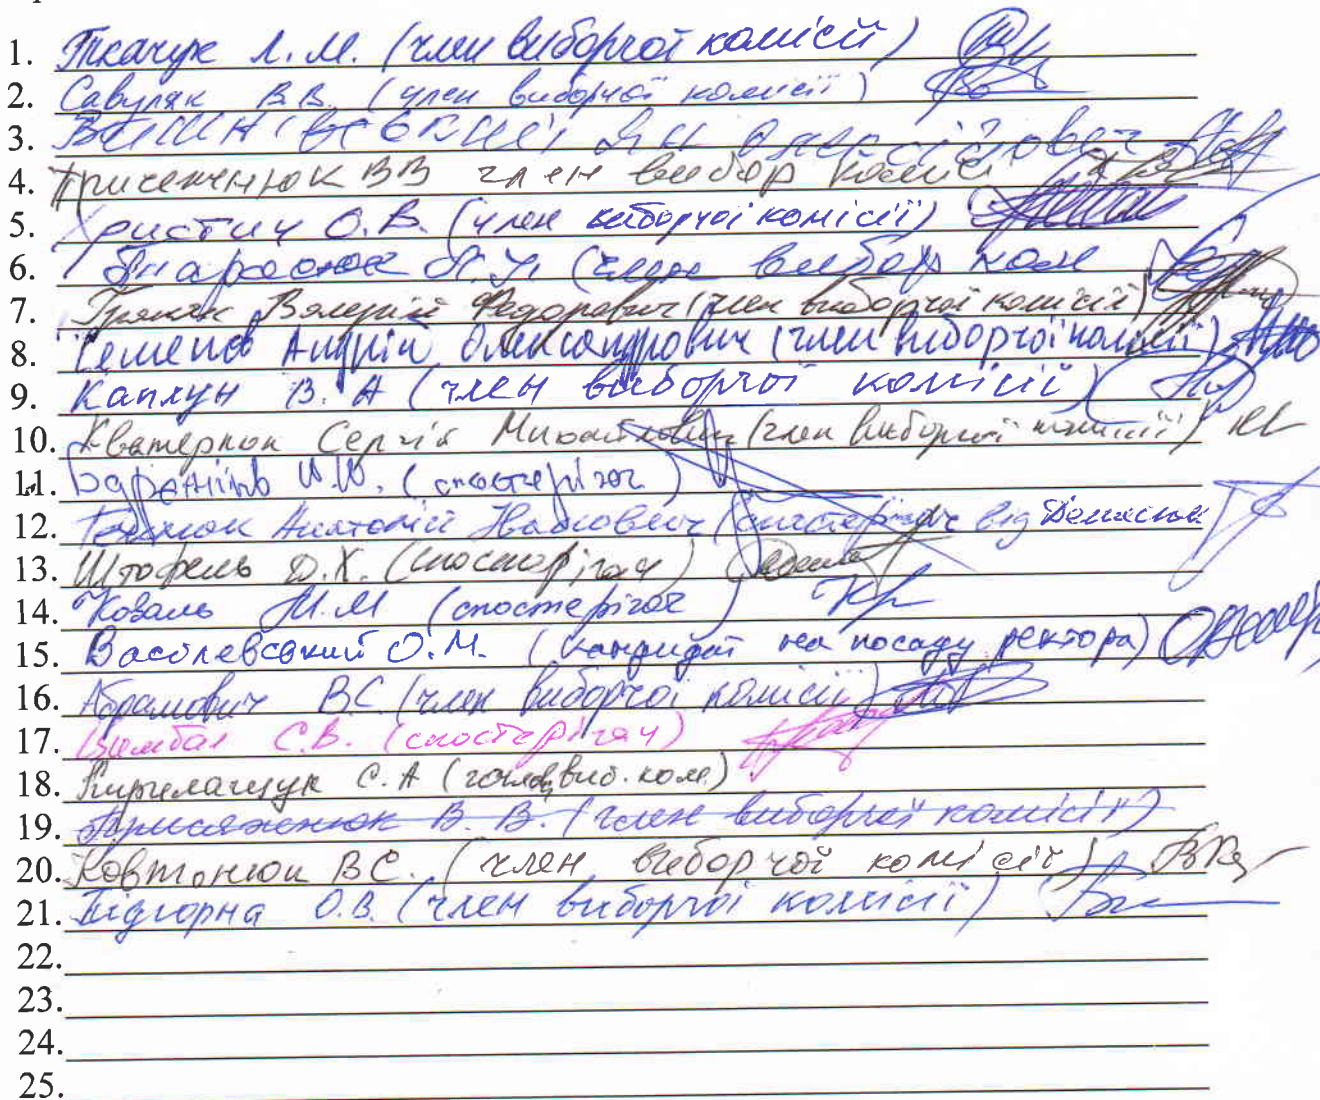 1. Ткачук Л. М. (член виборчої комісії)
2. Савуляк В.В. (член виборчої комісії)
3.
4. Присяжнюк ВВ член вибор коміс
5. Христич О.В. (член виборчої комісії)
6. (член вибор ком
7. Валерій Федорович (член виборчої комісії)
8. Семенов Андрій Олександрович (член виборчої комісії)
9. Каплун В. А (член виборчої комісії)
10. Кватернюк Сергій Михайлович (член виборчої комісії)
11. (спостерігач)
12. Анатолій Іванович (спостерігач від Денисюк
13. Штофель Д.Х. (спостерігач)
14. Коваль М.М (спостерігач)
15. Васілевський О.М. (кандидат на посаду ректора)
16. Абрамович В.С. (член виборчої комісії)
17. С.В. (спостерігач)
18. Кирилащук С.А (голова виб. ком.)
19. Присяжнюк В. В. (член виборчої комісії)
20. Ковтонюк В.С. (член виборчої комісії)
21. Підгорна О.В. (член виборчої комісії)
22.
23.
24.
25.